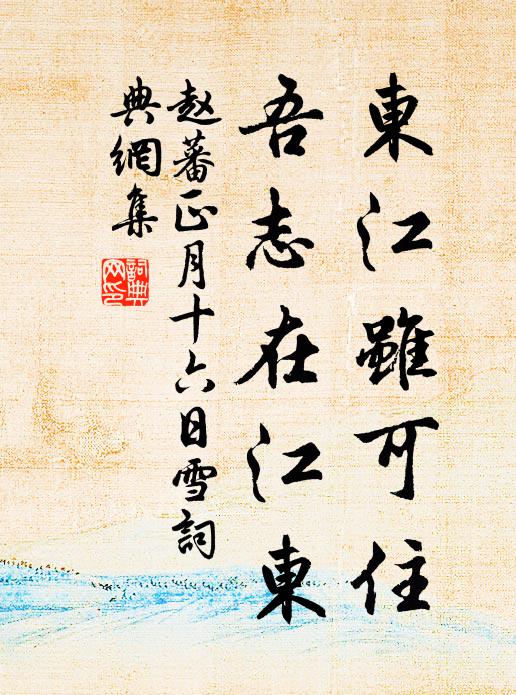 東江雖可住
吾志在江東
赵蕃正月十六日雪詞
典網集
詞典
网印